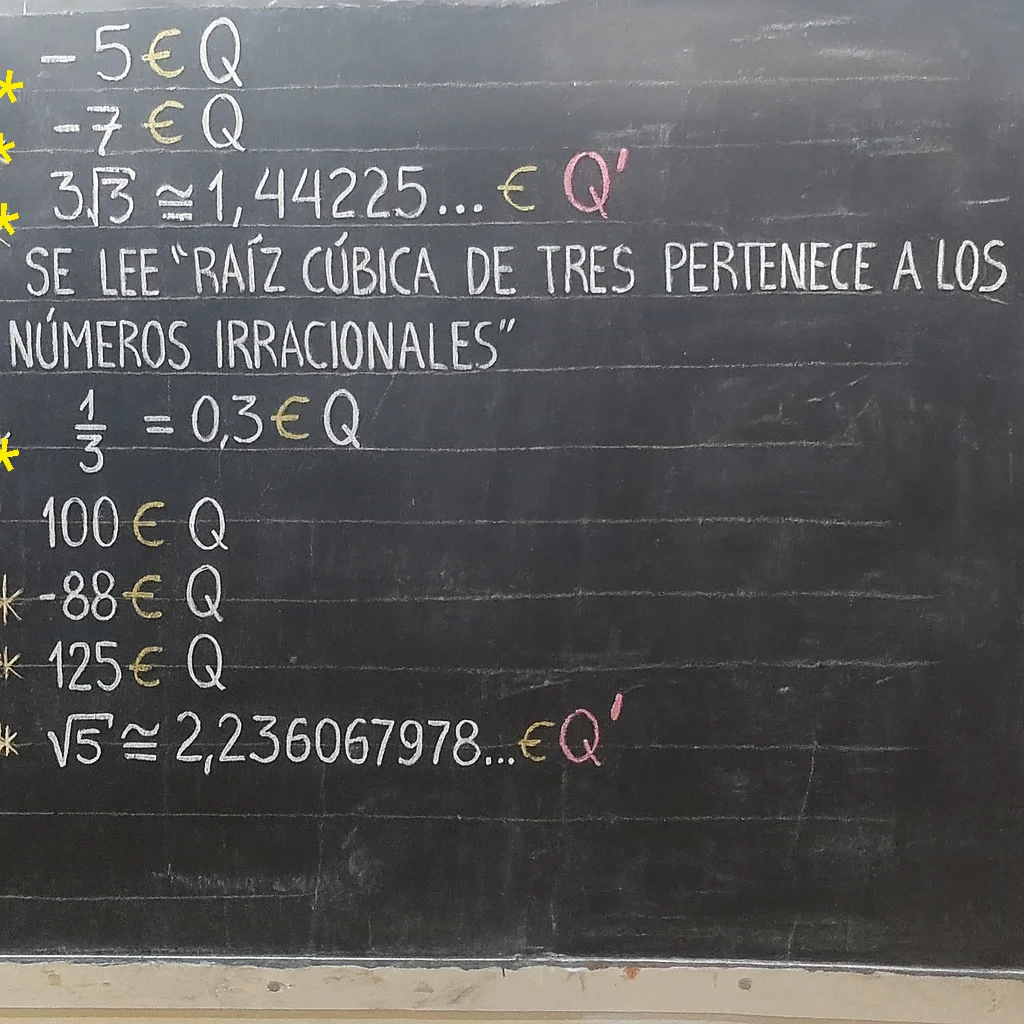 - 5 € Q
* -7 € Q
* 3√3 ≅ 1,44225... € Q'
* SE LEE "RAÍZ CÚBICA DE TRES PERTENECE A LOS
NÚMEROS IRRACIONALES"
1/3 = 0,3 € Q
*
100 € Q
* -88 € Q
* 125 € Q
* √5 ≅ 2,236067978... € Q'